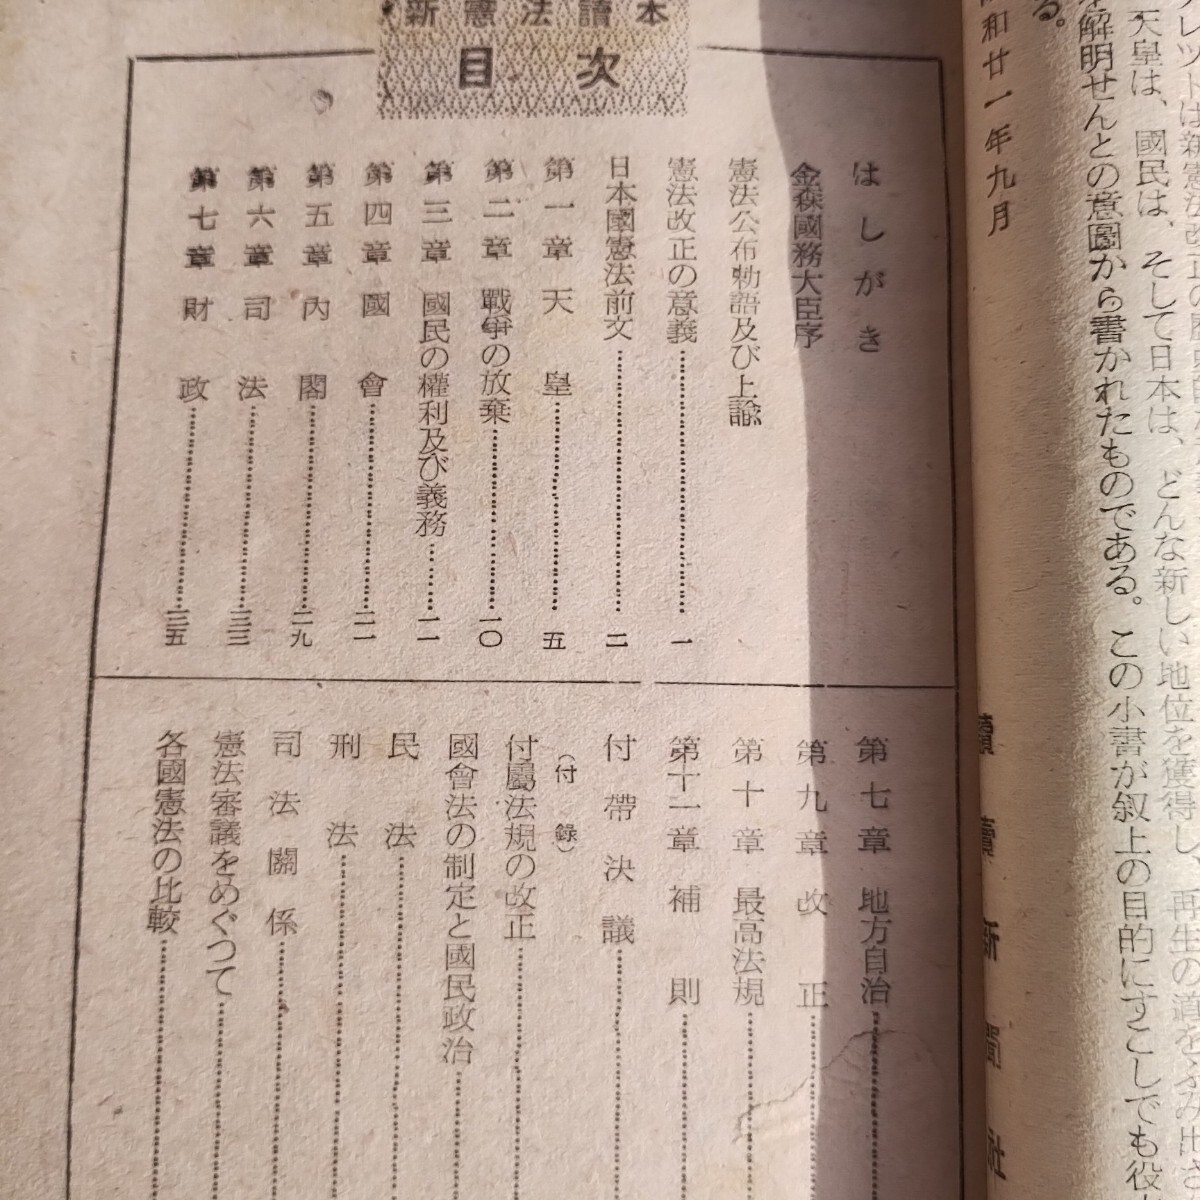 天皇は、國民は、そして日本は、どんな新しい地位を獲得し、再生の道をふみ出さ
解明せんとの意圖から書かれたものである。この小書が叙上の目的にすこしでも役
る。
和廿一年九月
讀賣新聞社
新憲法讀本
目次
はしがき
金森國務大臣序
憲法公布勅語及び上諭
憲法改正の意義 一
日本國憲法前文 二
第一章 天皇 五
第二章 戰爭の放棄 一〇
第三章 國民の權利及び義務 一一
第四章 國會 二一
第五章 內閣 二九
第六章 司法 三三
第七章 財政 三五
第七章 地方自治
第九章 改正
第十章 最高法規
第十一章 補則
付帶決議
（付錄）
付屬法規の改正
國會法の制定と國民政治
民法
刑法
司法關係
憲法審議をめぐつて
各國憲法の比較